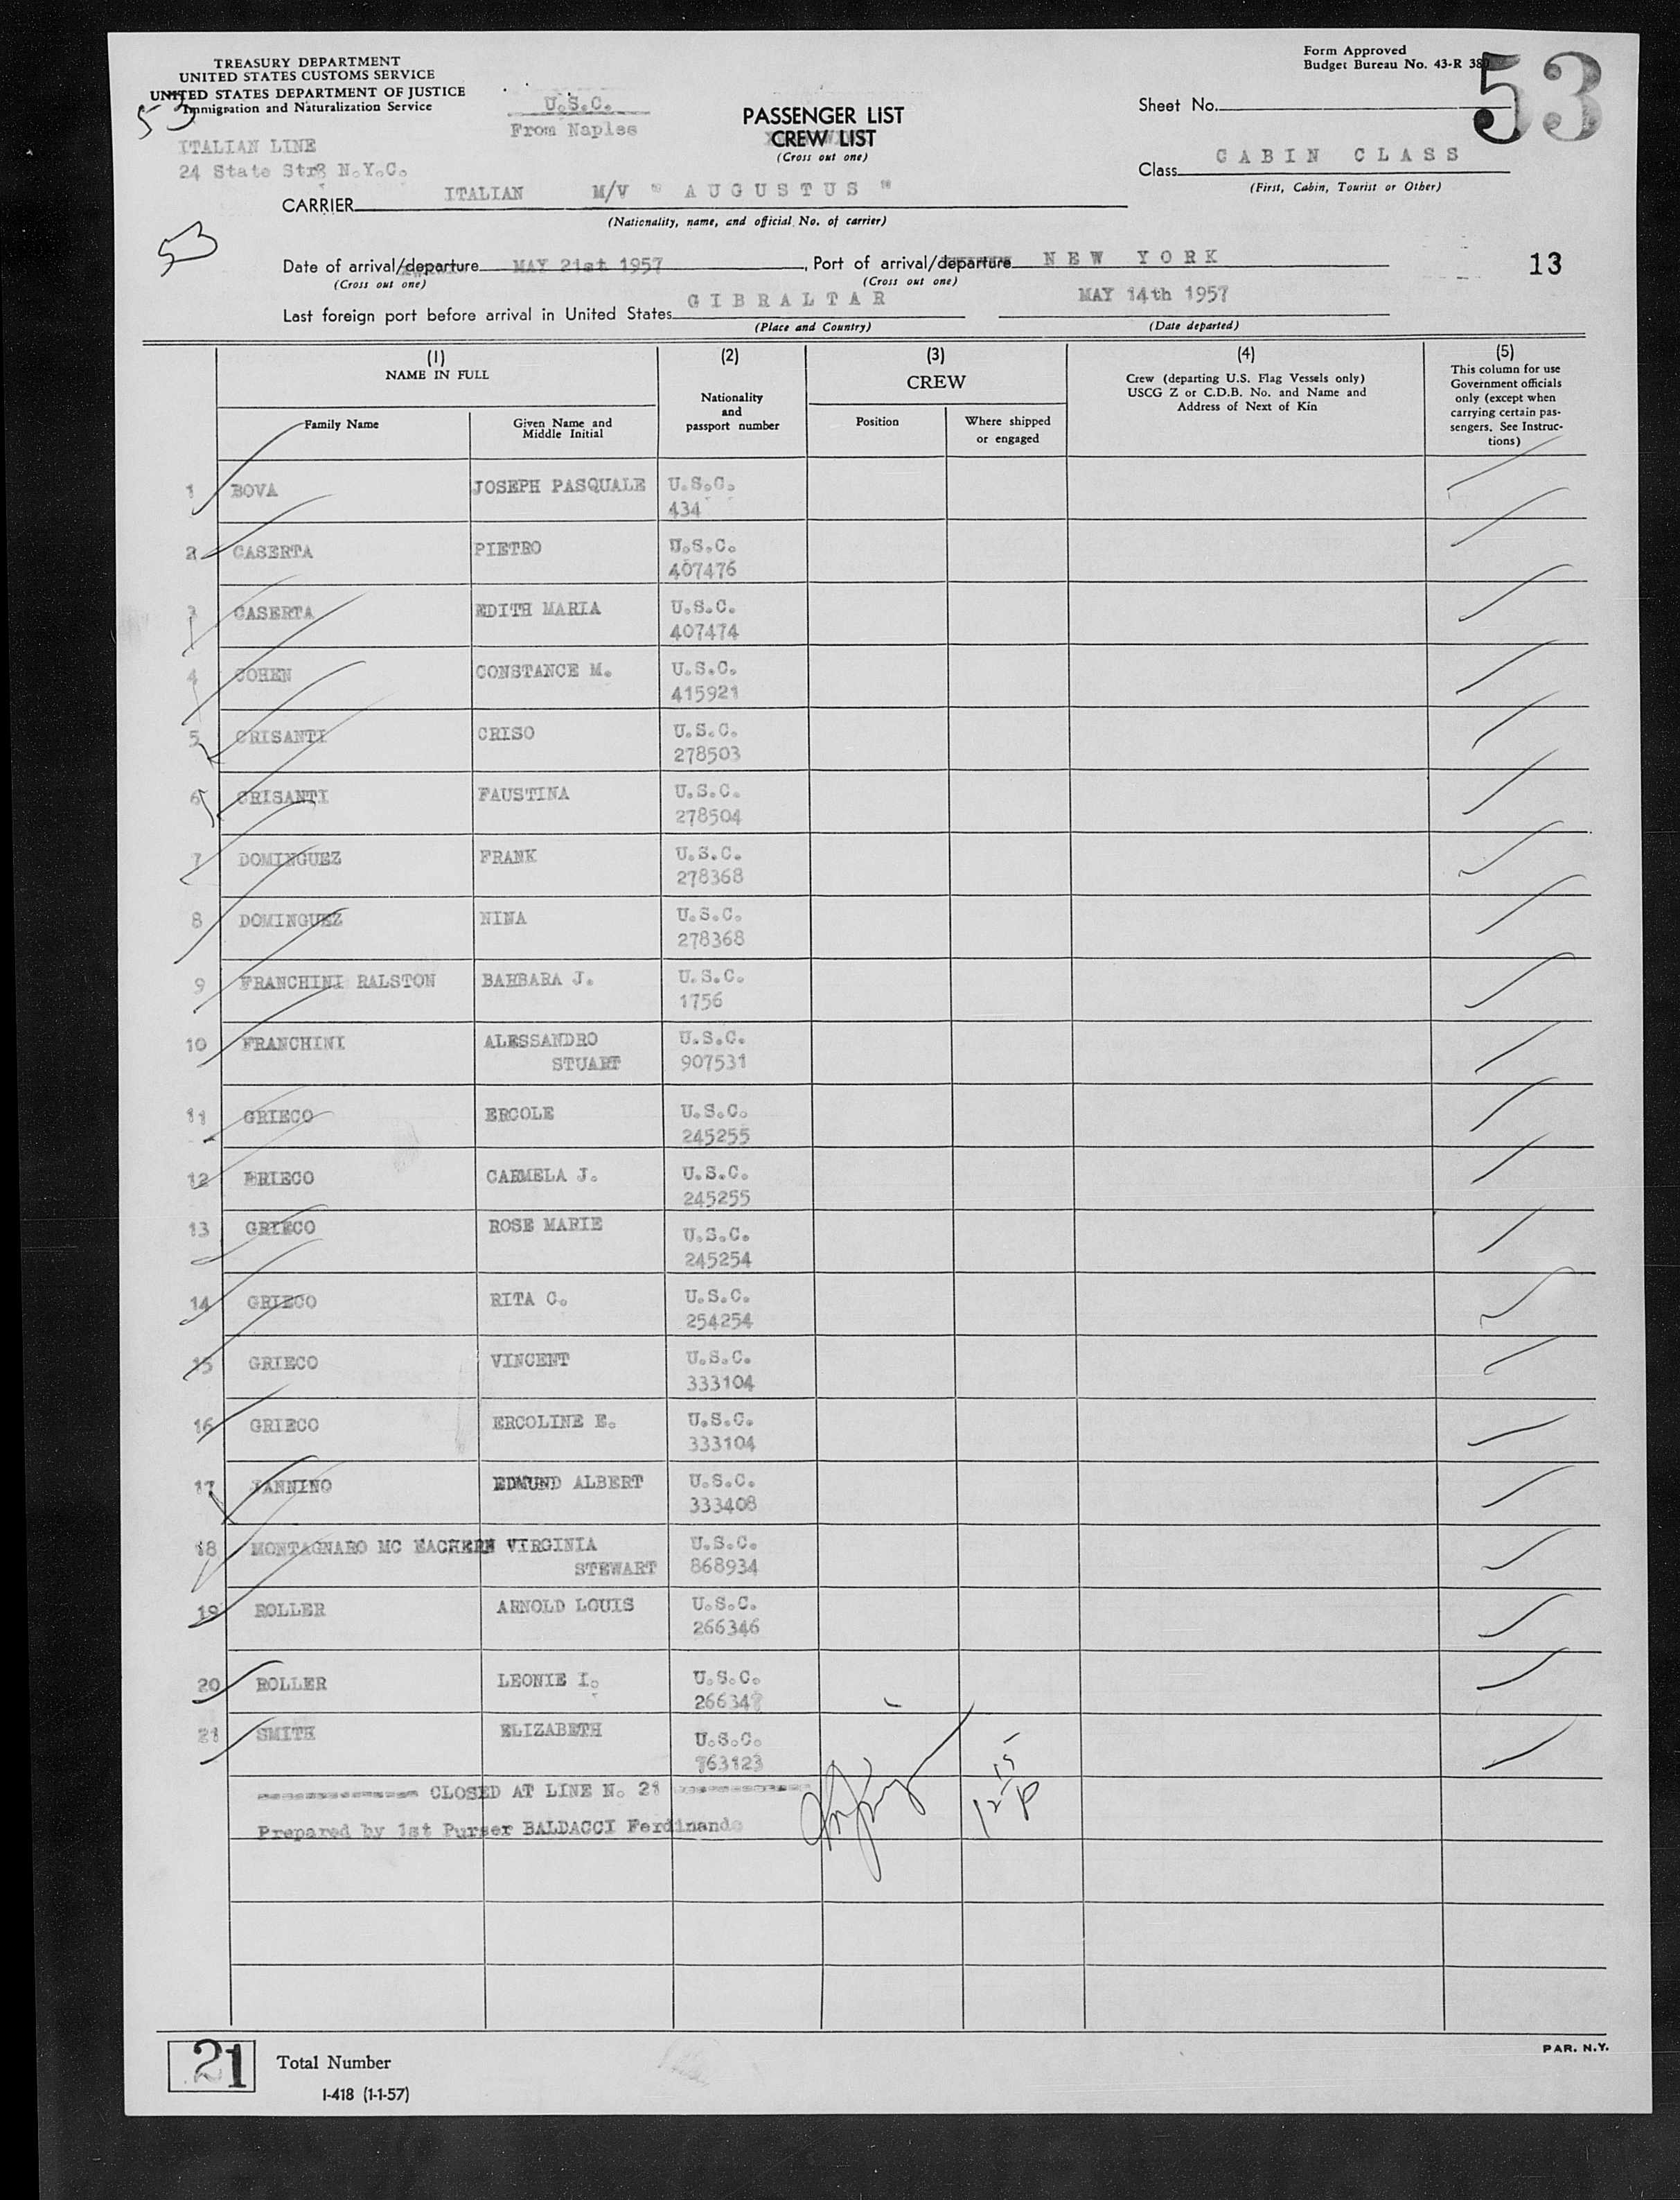 TREASURY DEPARTMENT
UNITED STATES CUSTOMS SERVICE
UNITED STATES DEPARTMENT OF JUSTICE
Immigration and Naturalization Service
53
ITALIAN LINE
24 State Str N.Y.C.
U.S.C.
From Naples
PASSENGER LIST
CREW LIST
(Cross out one)
Form Approved
Budget Bureau No. 43-R
53
Sheet No.
Class CABIN CLASS
(First, Cabin, Tourist or Other)
CARRIER ITALIAN M/V " AUGUSTUS "
(Nationality, name, and official No. of carrier)
53
Date of arrival/departure MAY 21st 1957, Port of arrival/departure NEW YORK
(Cross out one) (Cross out one)
13
Last foreign port before arrival in United States GIBRALTAR MAY 14th 1957
(Place and Country) (Date departed)
(1) NAME IN FULL
Family Name
Given Name and Middle Initial
(2) Nationality and passport number
(3) CREW
Position
Where shipped or engaged
(4) Crew (departing U.S. Flag Vessels only) USCG Z or C.D.B. No. and Name and Address of Next of Kin
(5) This column for use Government officials only (except when carrying certain passengers. See Instructions)
1 BOVA JOSEPH PASQUALE U.S.C.
434
2 CASERTA PIETRO U.S.C.
407476
3 CASERTA EDITH MARIA U.S.C.
407474
4 COHEN CONSTANCE M. U.S.C.
415921
5 CRISANTI CRISO U.S.C.
278503
6 CRISANTI FAUSTINA U.S.C.
278504
7 DOMINGUEZ FRANK U.S.C.
278368
8 DOMINGUEZ NINA U.S.C.
278368
9 FRANCHINI RALSTON BARBARA J. U.S.C.
1756
10 FRANCHINI ALESSANDRO U.S.C.
STUART 907531
11 GRIECO ERCOLE U.S.C.
245255
12 GRIECO CARMELA J. U.S.C.
245255
13 GRIECO ROSE MARIE U.S.C.
245254
14 GRIECO RITA C. U.S.C.
254254
15 GRIECO VINCENT U.S.C.
333104
16 GRIECO ERCOLINE E. U.S.C.
333104
17 IANNINO EDMUND ALBERT U.S.C.
333408
18 MONTAGNARO MC EACHERN VIRGINIA U.S.C.
STEWART 868934
19 ROLLER ARNOLD LOUIS U.S.C.
266346
20 ROLLER LEONIE I. U.S.C.
21 SMITH ELIZABETH U.S.C.
763123
CLOSED AT LINE N. 21
Prepared by 1st Purser BALDACCI Ferdinando
12 15 P
21 Total Number
I-418 (1-1-57)
PAR. N.Y.